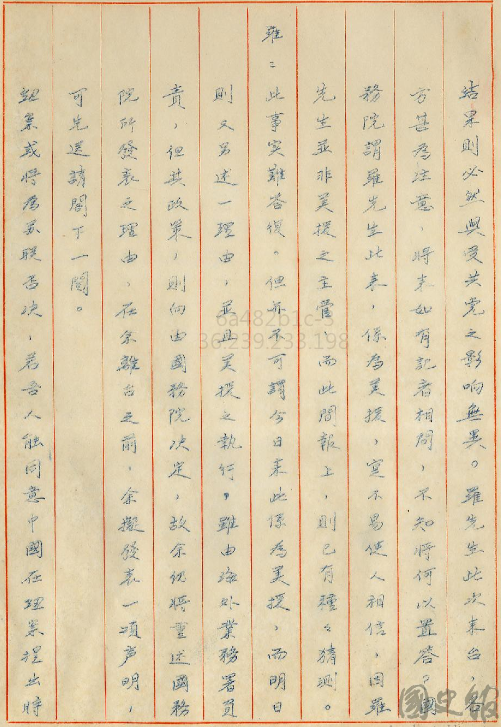 結果則必然與受共黨之影响無異。羅先生此次來台，各
方甚為注意，將來如有記者相問，不知將何以置答。國
務院謂羅先生此來，係為美援，實不易使人相信，因羅
先生並非美援之主管，而此間報上，則已有種々猜測。
羅：此事实難答復。但亦不可謂今日來此係為美援，而明日
則又另述一理由，並且美援之執行，雖由海外業務署負
責，但其政策，則仍由國務院决定，故余仍將重述國務
院所發表之理由，在余離台之前，余擬發表一項声明，
可先送請閣下一閱。
題案或將為苏联否决，若吾人能同意中國在題案提出時
6a482b1c-3
36.239.233.198
國史館